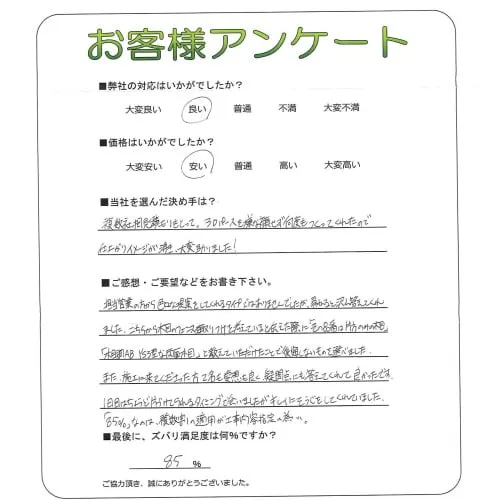 お客様アンケート
■弊社の対応はいかがでしたか？
大変良い 良い 普通 不満 大変不満
■価格はいかがでしたか？
大変安い 安い 普通 高い 大変高い
■当社を選んだ決め手は？
複数社相見積りをとって、3Dパースを嫌な顔せず何度もつくってくれたので
仕上がりイメージが湧き、大変助かりました！
■ご感想・ご要望などをお書き下さい。
担当営業の方から色々な提案をしてくれるタイプではありませんでしたが、尋ねると答えてくれ
ました。こちらから木目の
と教えていただけたことで後悔しないもので選べました。
また、施工に来てくださった方々も愛想も良く、疑問点にも答えてくれて良かったです。
1日目はちらりと片づけておられるタイミングで会いましたがキレイにそうじをしてくれていました。
「85%」なのは、複数割の適用が工事内容指定の為…。
■最後に、ズバリ満足度は何%ですか？
85 %
ご協力頂き、誠にありがとうございました。